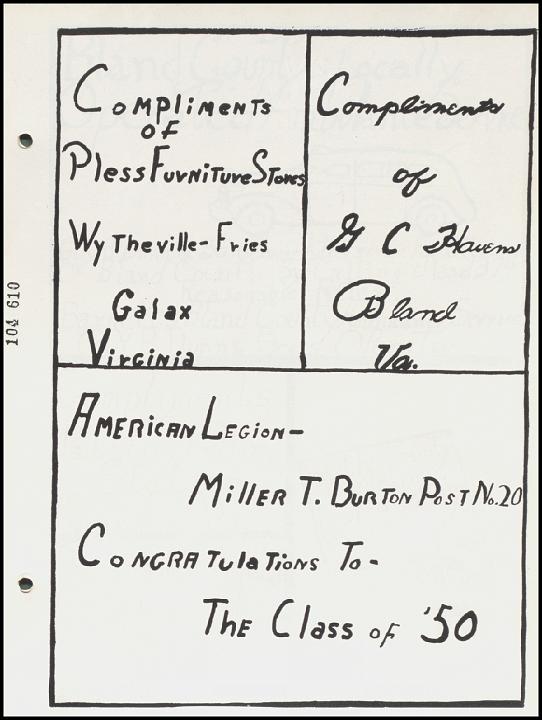 Compliments
of
Pless Furniture Stores
Wytheville-Fries
Galax
Virginia
Compliments
of
G C Havens
Bland
Va.
American Legion-
Miller T. Burton Post No. 20
Congratulations To-
The Class of '50
104 610